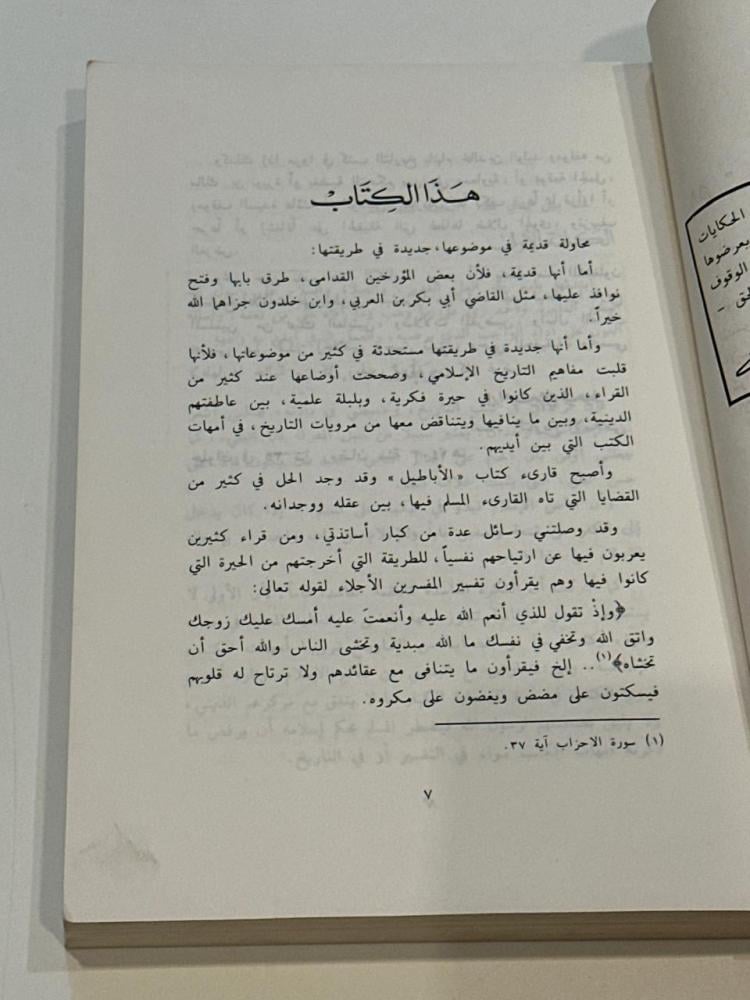 هَذَا الكِتَابُ
محاولة قديمة في موضوعها، جديدة في طريقتها:
أما أنها قديمة، فلأن بعض المؤرخين القدامى، طرق بابها وفتح
نوافذ عليها، مثل القاضي أبي بكر بن العربي، وابن خلدون جزاهما الله
خيراً.
وأما أنها جديدة في طريقتها مستحدثة في كثير من موضوعاتها، فلأنها
قلبت مفاهيم التاريخ الإسلامي، وصححت أوضاعها عند كثير من
القراء، الذين كانوا في حيرة فكرية، وبلبلة علمية، بين عاطفتهم
الدينية، وبين ما ينافيها ويتناقض معها من مرويات التاريخ، في أمهات
الكتب التي بين أيديهم.
وأصبح قارىء كتاب «الأباطيل» وقد وجد الحل في كثير من
القضايا التي تاه القارىء المسلم فيها، بين عقله ووجدانه.
وقد وصلتني رسائل عدة من كبار أساتذتي، ومن قراء كثيرين
يعربون فيها عن ارتياحهم نفسياً، للطريقة التي أخرجتهم من الحيرة التي
كانوا فيها وهم يقرأون تفسير المفسرين الأجلاء لقوله تعالى:
﴿وإذْ تقول للذي أنعم الله عليه وأنعمتَ عليه أمسك عليك زوجك
واتق الله وتخفي في نفسك ما الله مبدية وتخشى الناس والله أحق أن
تخشاه﴾(١).. إلخ فيقرأون ما يتنافى مع عقائدهم ولا ترتاح له قلوبهم
فيسكتون على مضض ويغضون على مكروه.
(١) سورة الاحزاب آية ٣٧.
٧
الحكايات
يعرضوها
الوقوف